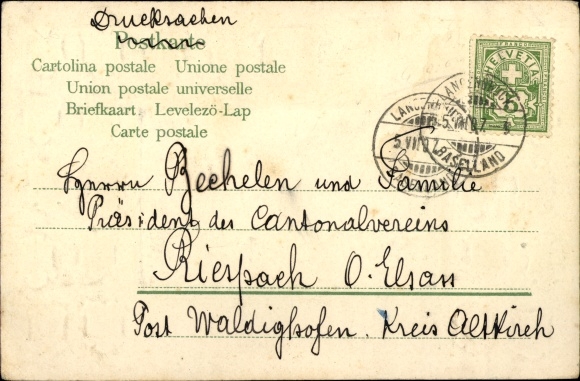 Drucksachen
Postkarte
Cartolina postale Unione postale
Union postale universelle
Briefkaart. Levelezö-Lap
Carte postale
FRANCO
HELVETIA
BASELLAND
Herrn Bechelen und Familie
Präsident des Cantonalvereins
Riespach O. Elsass
Post Waldighofen. Kreis Altkirch